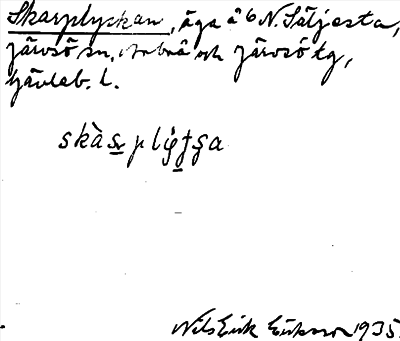 Skarplyckan, äga å 6 N. Säljesta,
Järvsö sn, Arbrå och Järvsö tg,
Gävleb. l.
Nils Eirik Eriksson 1935.